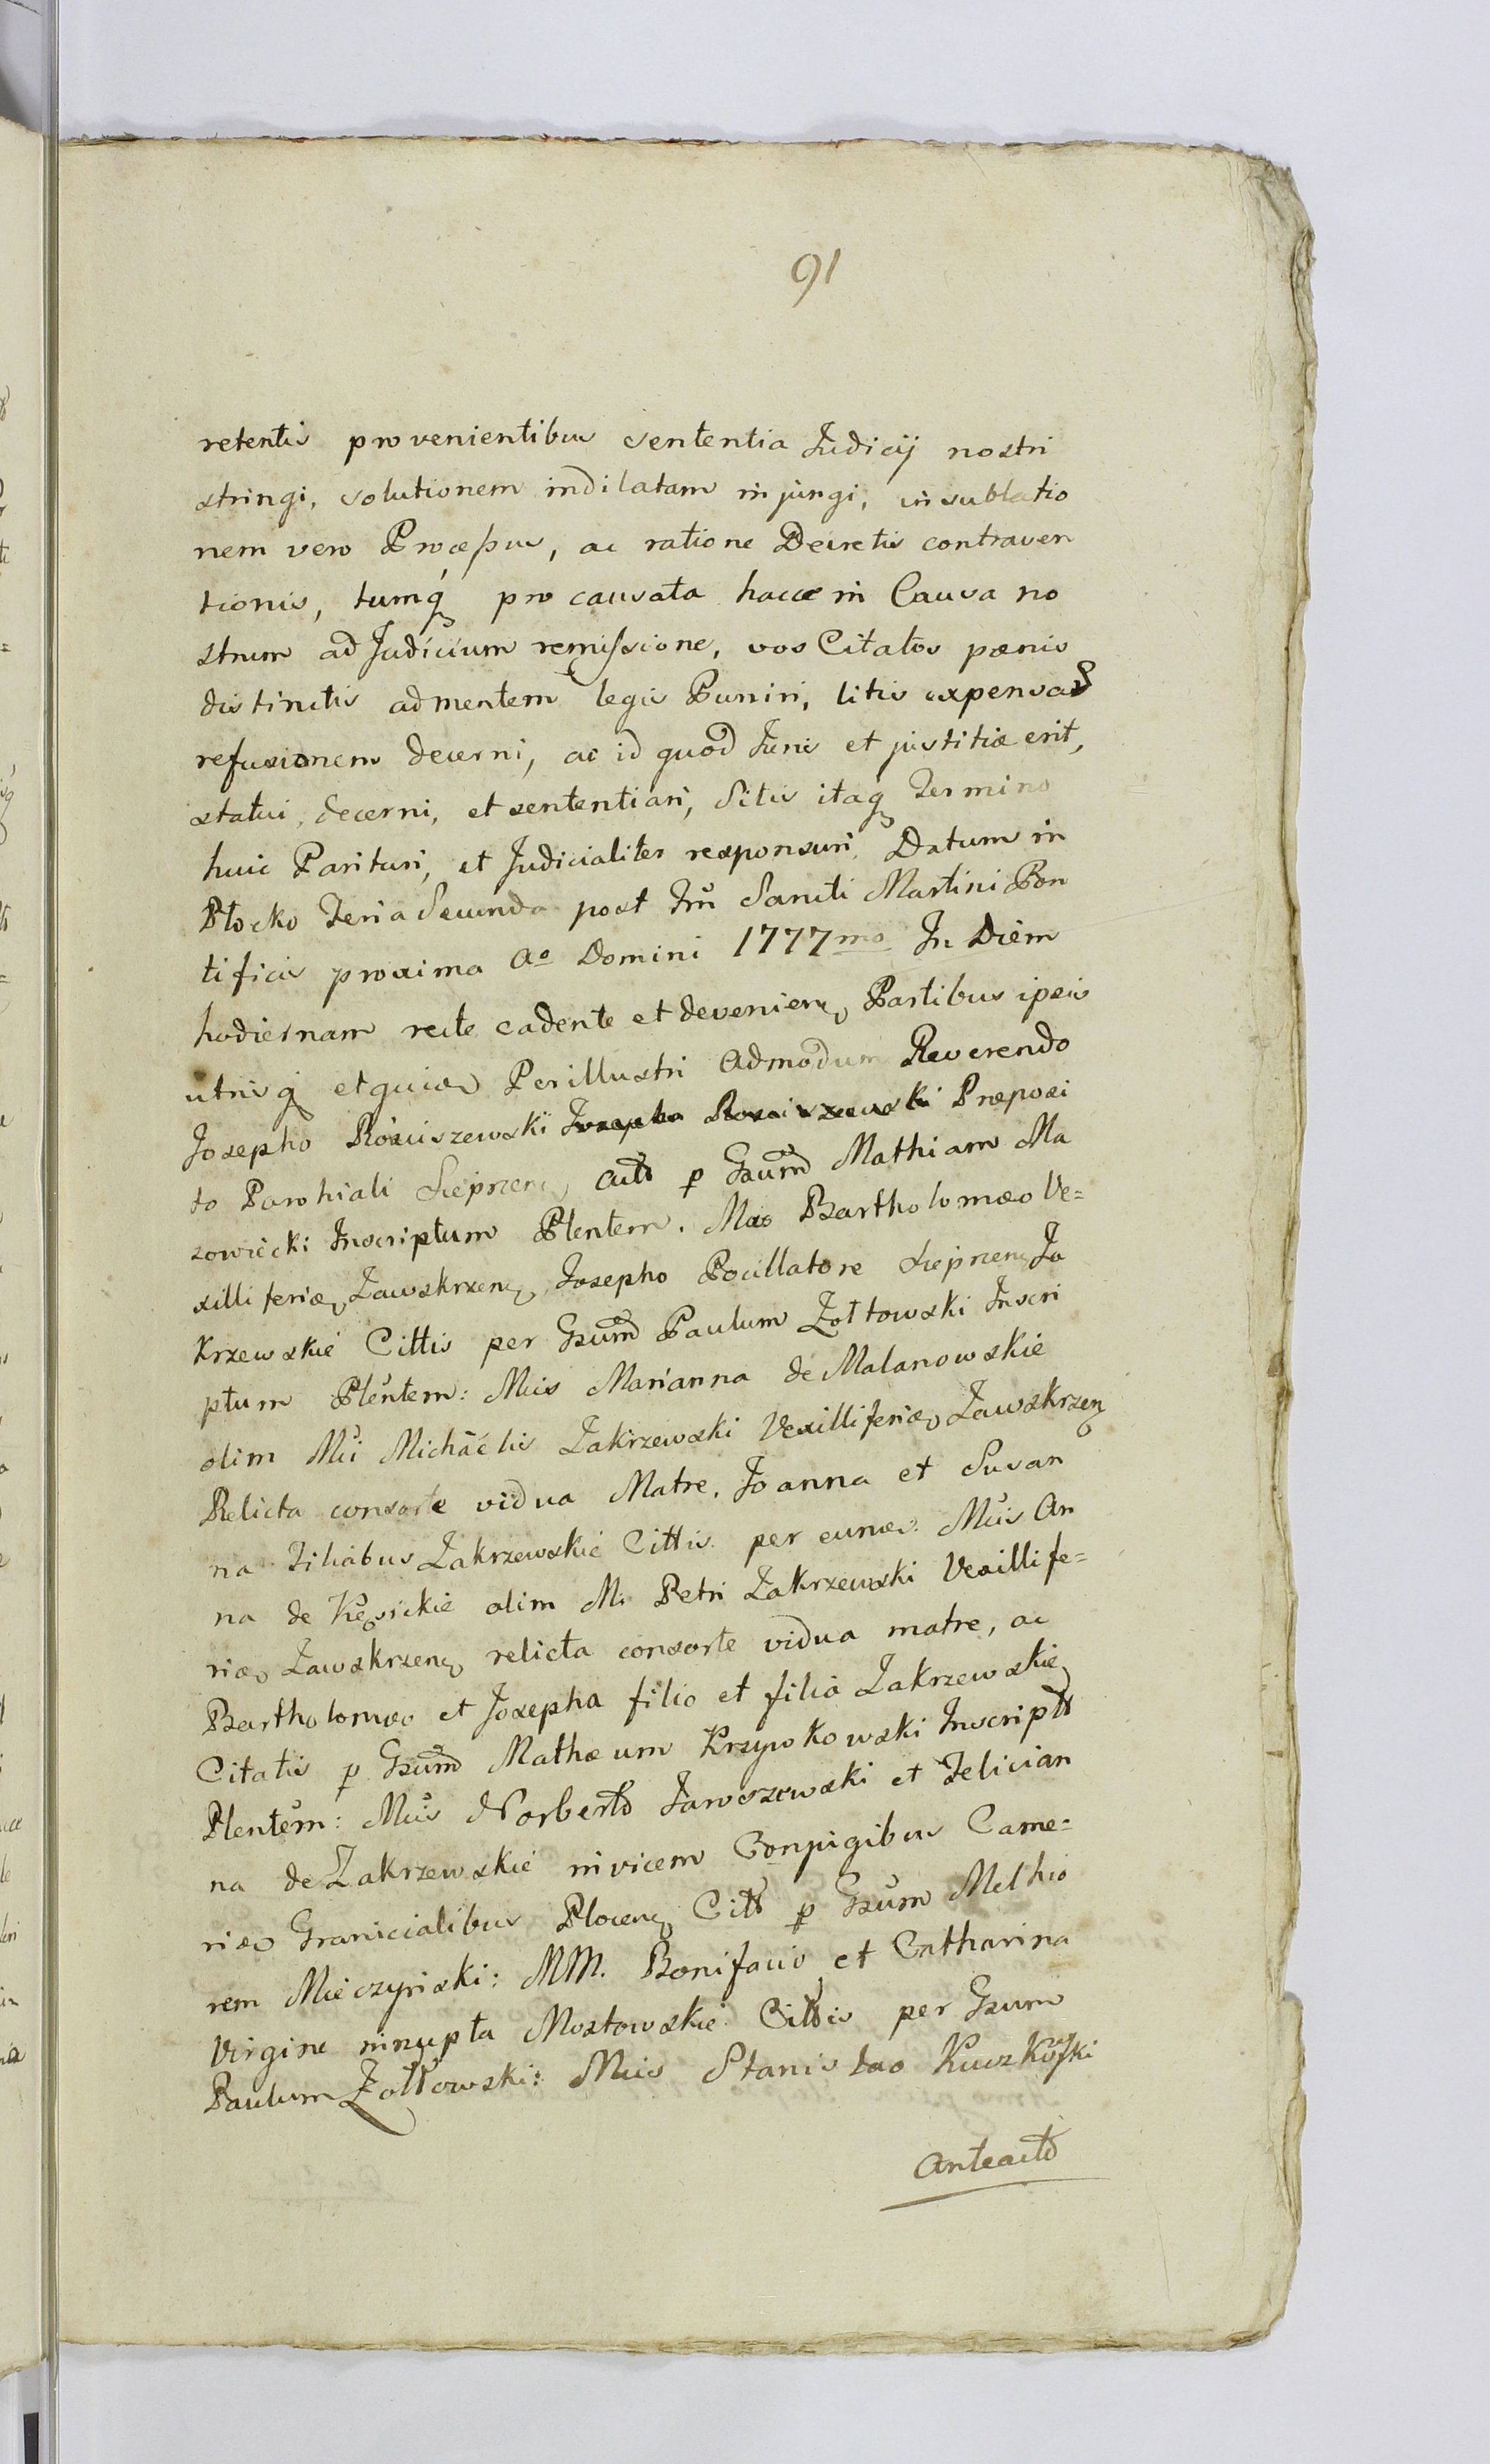 91
retentis provenientibus sententia Judicij nostri
stringi, solutionem indilatam injungi, in sublatio
nem vero Processus, ac ratione Decretis contraven
tionis, tumq́ pro causata hacce in Causa no
strum ad Judicium remissione, vos Citatos pœnis
distinctis ad mentem legis Puniri, litis expensas
refusionem decerni, ac id quod Juris et justitiæ erit,
statui, decerni, et sententiari, Sitis itaq Termino
huic Parituri, et Judicialiter responsuri. Datum in
Płocko Feria Secunda post Fm̃ Sancti Martini Pon
tificis proxima Aº Domini 1777mo In Diem
hodiernam recte cadente et devenien, Partibus ipsis
utrisq́ et quidem Perillustri Admodum Reverendo
Josepho Rosciszewski Josepho Rosciszewski Præposi
to Parohiali Sieprcen, Actõ p Gsum̃ Mathiam Ma
zowiecki Inscriptum Plentem. Mco Bartholomæo Ve=
xilliferiæ Zawskrzen, Josepho Pocillatore Sieprcen Za
krzewskie Cittis per Gsum̃ Paulum Zołtowski Inscri
ptum Plentem: Mcis Marianna de Malanowskie
olim Mci Michaëlis Zakrzewski Vexilliferiæ Zawskrzen
Relicta consorte vidua Matre, Joanna et Susan
na Filiabus Zakrzewskie Cittis per eund: Mcis An
na de Kęsickie olim M. Petri Zakrzewski Vexillife=
riæ Zawskrzen relicta consorte vidua matre, ac
Bartholomæo et Josepha filio et filia Zakrzewskie
Citatis p Gsum̃ Mathæum Krzywkowski Inscriptt
Plentem: Mcis Norberto Jaroszewski et Felician
na de Zakrzewskie invicem Conjugibus Came=
riæ Granicialibus Plocen Citt p Gsum Melhio
rem Mieczyński: MM. Bonifacio et Catharina
Virgine innupta Mostowskie Cittis per Gsum
Paulum Zołtowski: Mcis Stanislao Kuczkoski
Anteactõ